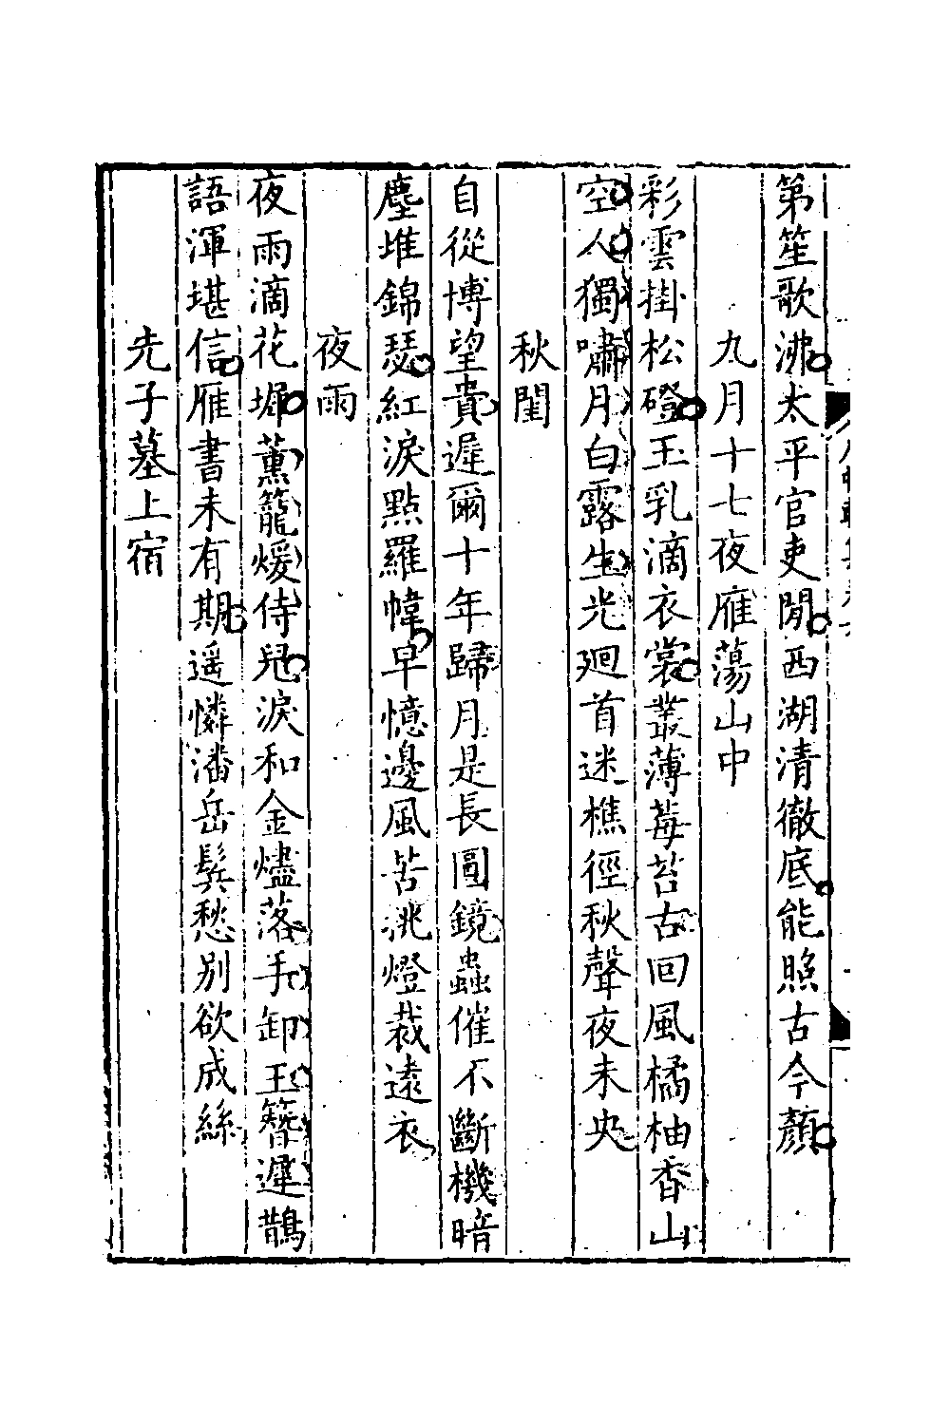 第笙歌沸太平官吏閒西湖清徹底能照古今顏
九月十七夜雁蕩山中
彩雲掛松磴玉乳滴衣裳叢薄莓苔古回風橘柚香山
空人獨嘯月白露生光廻首迷樵徑秋聲夜未央
秋閨
自從博望貴遲爾十年歸月是長圓鏡蟲催不斷機暗
塵堆錦瑟紅淚點羅幃早憶邊風苦挑燈裁遠衣
夜雨
夜雨滴花墀薰籠煖侍兒淚和金燼落手卸玉簪遲鵲
語渾堪信雁書未有期遥憐潘岳鬂愁别欲成絲
先子墓上宿